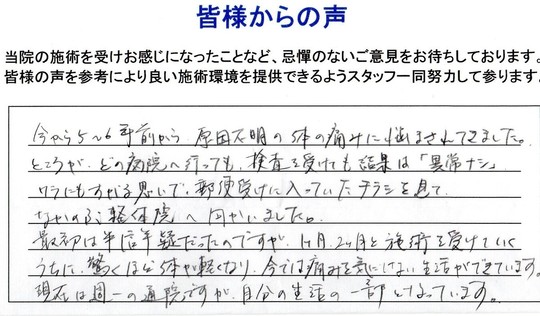 皆様からの声
当院の施術を受けお感じになったことなど、忌憚のないご意見をお待ちしております。
皆様の声を参考により良い施術環境を提供できるようスタッフ一同努力して参ります。
今から5〜6年前から、原因不明の体の痛みに悩まされてきました。
ところが、どの病院へ行っても、検査を受けても結果は「異常ナシ」
ワラにもすがる思いで、郵便受けに入っていたチラシを見て、
なかのぶ整体院へ向かいました。
最初は半信半疑だったのですが、1ヶ月、2ヶ月と施術を受けていく
うちに、驚くほど体が軽くなり、今では痛みを気にしない生活ができています。
現在は週一の通院ですが、自分の生活の一部となっています。